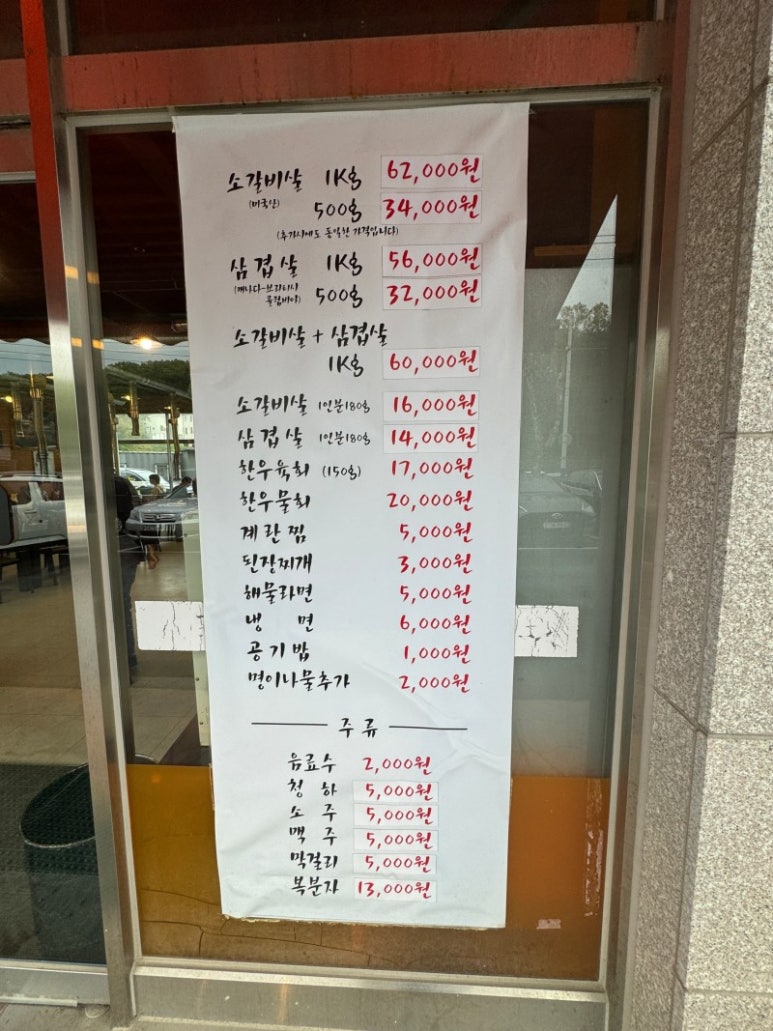 소갈비살 1Kg 62,000원
(미국산) 500g 34,000원
(추가시에도 동일한 가격입니다)
삼겹살 1Kg 56,000원
(캐나다-브리티시 콜럼비아) 500g 32,000원
소갈비살 + 삼겹살
1Kg 60,000원
소갈비살 1인분180g 16,000원
삼겹살 1인분180g 14,000원
한우육회 (150g) 17,000원
한우물회 20,000원
계란찜 5,000원
된장찌개 3,000원
해물라면 5,000원
냉 면 6,000원
공기밥 1,000원
명이나물추가 2,000원
주 류
음료수 2,000원
청 하 5,000원
소 주 5,000원
맥 주 5,000원
막걸리 5,000원
복분자 13,000원